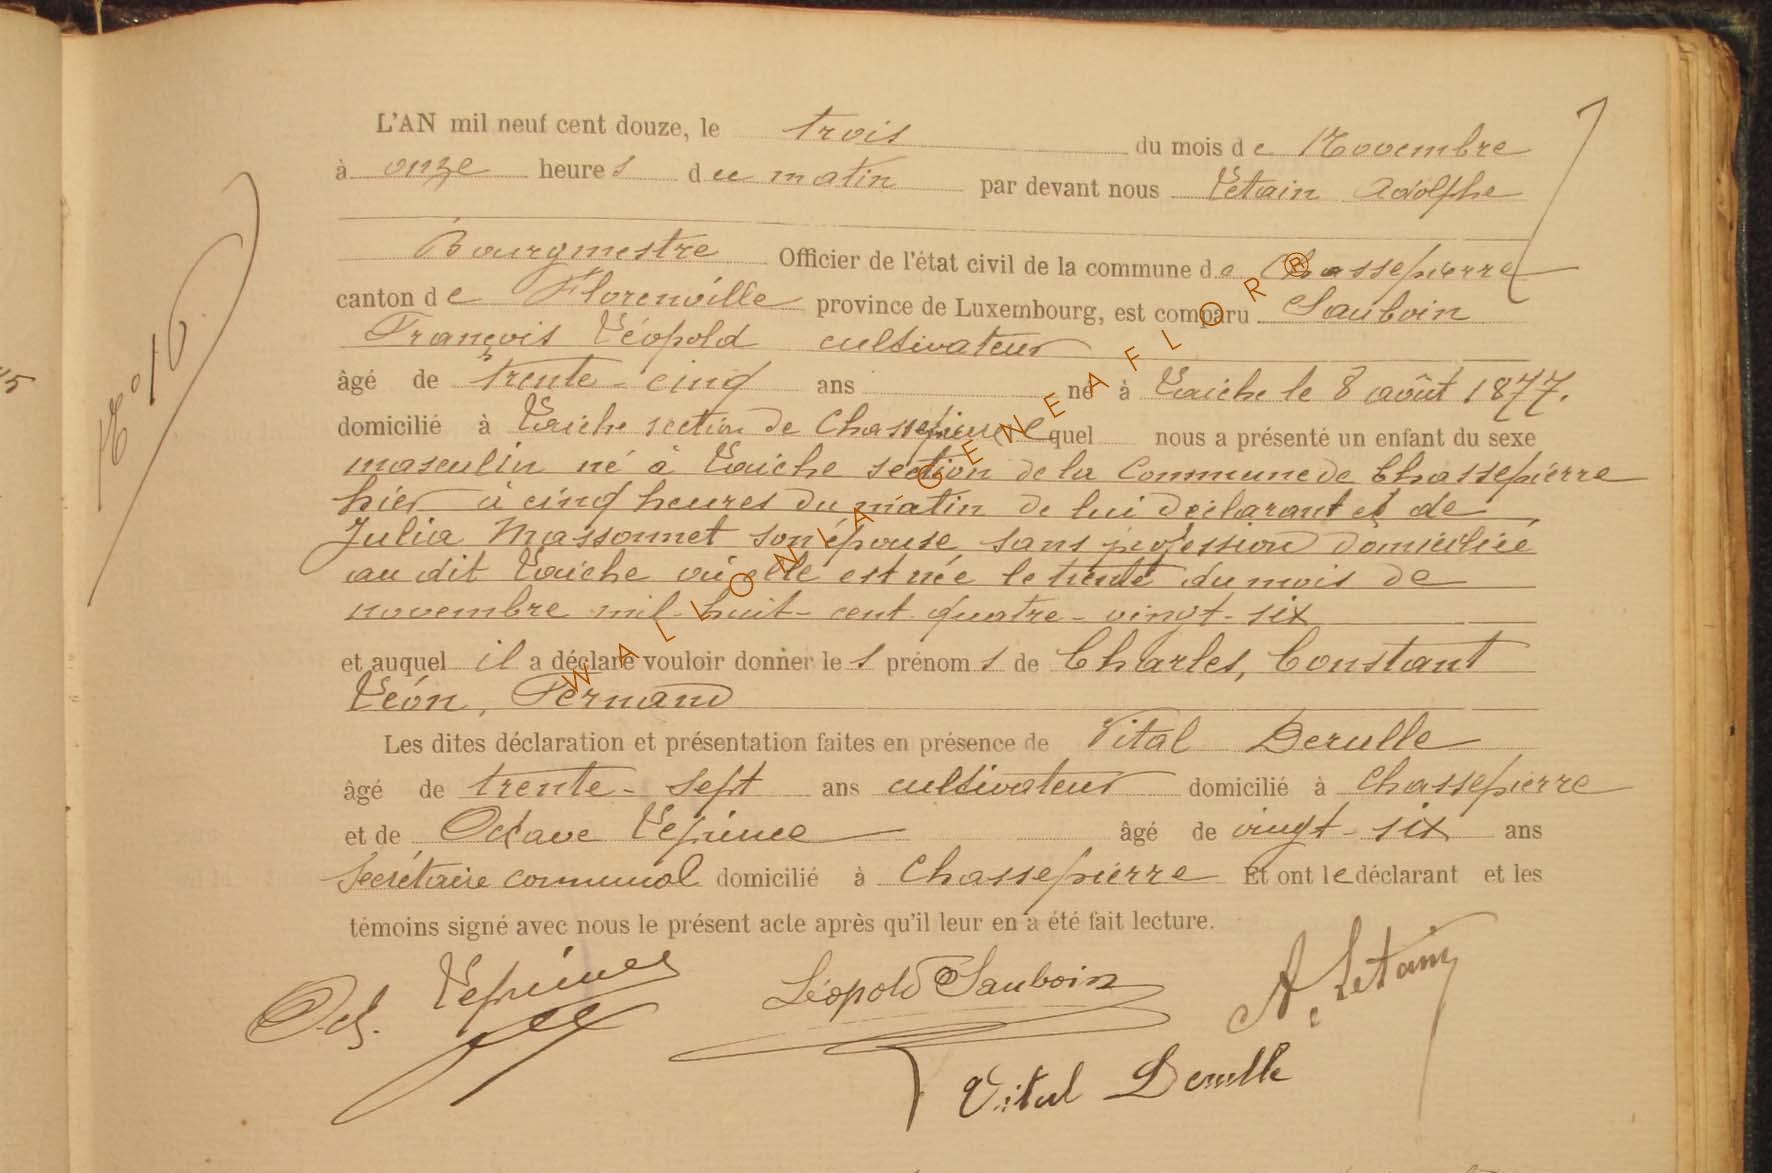 L'AN mil neuf cent douze, le trois du mois de Novembre
à onze heures du matin par devant nous Létain Adolphe
Bourgmestre Officier de l'état civil de la commune de Chassepierre
canton de Florenville province de Luxembourg, est comparu Sauboin
François Léopold cultivateur
âgé de trente-cinq ans né à Laiche le 8 août 1877.
domicilié à Laiche section de Chassepierre lequel nous a présenté un enfant du sexe
masculin né à Laiche section de la Commune de Chassepierre
hier à cinq heures du matin de lui déclarant et de
Julia Massonnet son épouse sans profession domiciliée
au dit Laiche où elle est née le trente du mois de
novembre mil-huit-cent quatre-vingt-six
et auquel il a déclaré vouloir donner les prénoms de Charles, Constant
Léon, Fernand
Les dites déclaration et présentation faites en présence de Vital Derulle
âgé de trente-sept ans cultivateur domicilié à Chassepierre
et de Octave Leprince âgé de vingt-six ans
Secrétaire communal domicilié à Chassepierre Et ont le déclarant et les
témoins signé avec nous le présent acte après qu'il leur en a été fait lecture.
Oct. Leprince Léopold Sauboin A. Letain
Vital Derulle
N° 16
WALLONIA GENEAFLOR®